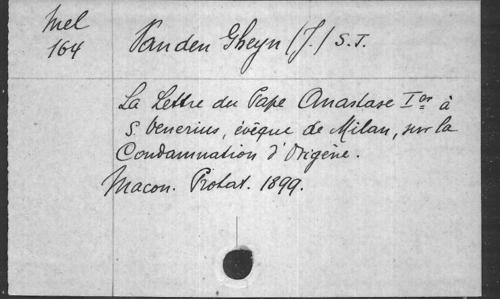 Mel
164
Van den Gheyn (J.) S.J.
La Lettre du Pape Anastase Ier à
S. Venerius, évêque de Milan, sur la
Condamnation d'Origène.
Macon. Protat. 1899.